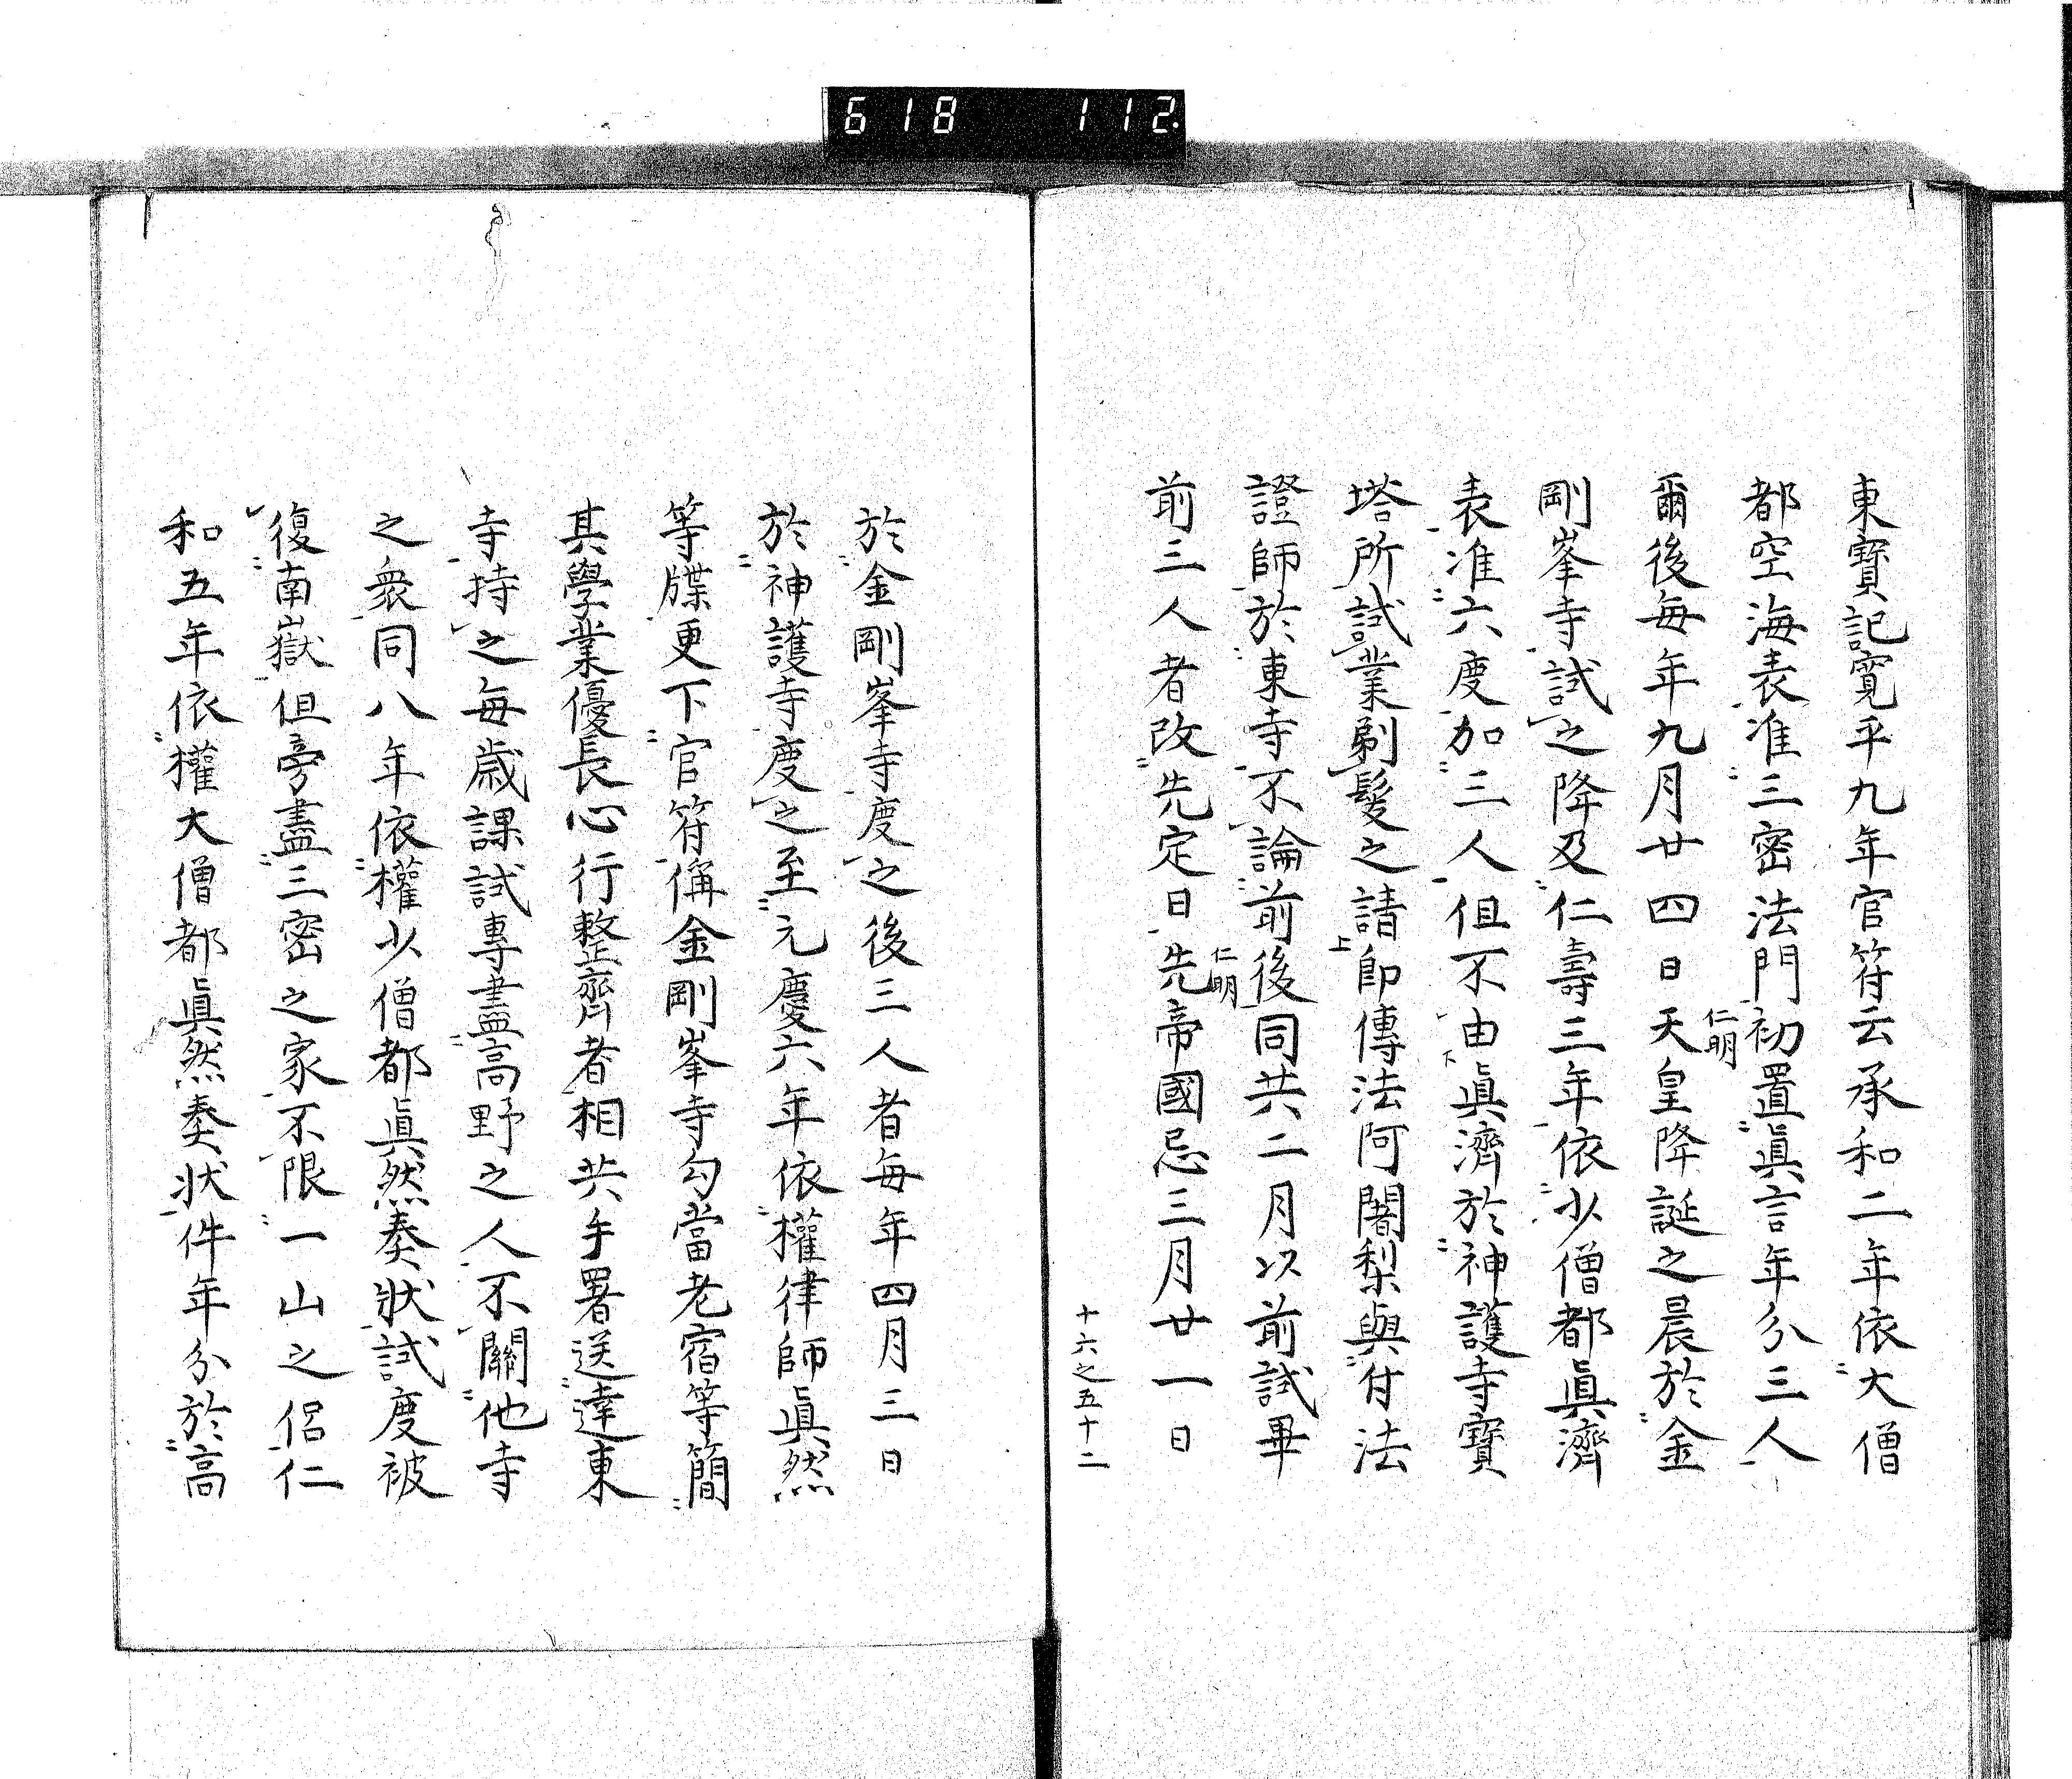 618 112.
東寶記寛平九年官符云承和二年依大僧
都空海表准三密法門初置眞言年分三人
爾後毎年九月廿四日天皇降誕之晨於金
仁明
剛峯寺試之降及仁壽三年依少僧都眞濟
表准六度加三人但不由眞濟於神護寺寳
下
塔所試業剃髮之請卽傳法阿闍梨與付法
上
證師於東寺不論前後同共二月以前試畢
前三人者改先定日先帝國忌三月廿一日
仁明
十六之五十二
於金剛峯寺度之後三人者毎年四月三日
於神護寺度之至元慶六年依權律師眞然
等牒更下官符偁金剛峯寺勾當老宿等簡
其學業優長心行整齊者相共手署送達東
寺持之毎歳課試專盡高野之人不關他寺
之衆同八年依權少僧都眞然奏狀試度被
復南嶽但旁盡三密之家不限一山之侶仁
和五年依權大僧都眞然奏状件年分於高